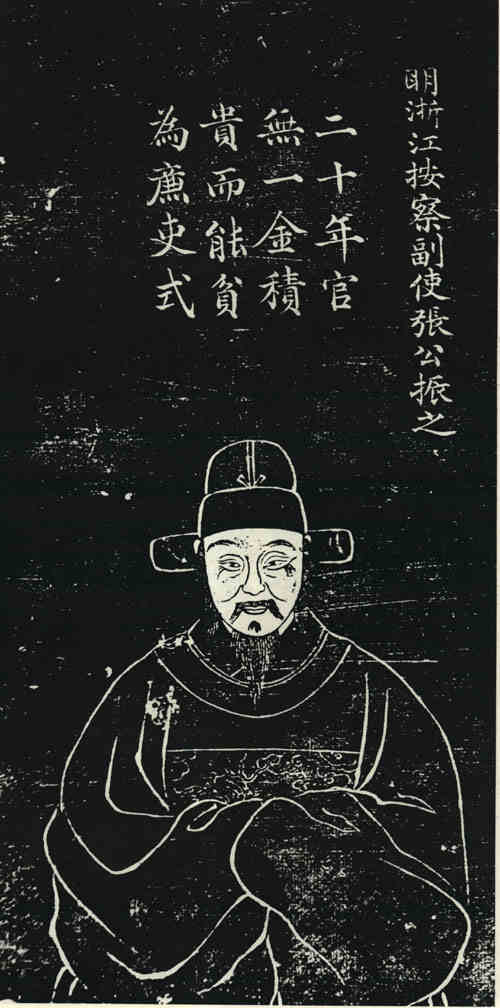 明浙江按察副使張公振之
二十年官
無一金積
貴而能貧
為廉吏式